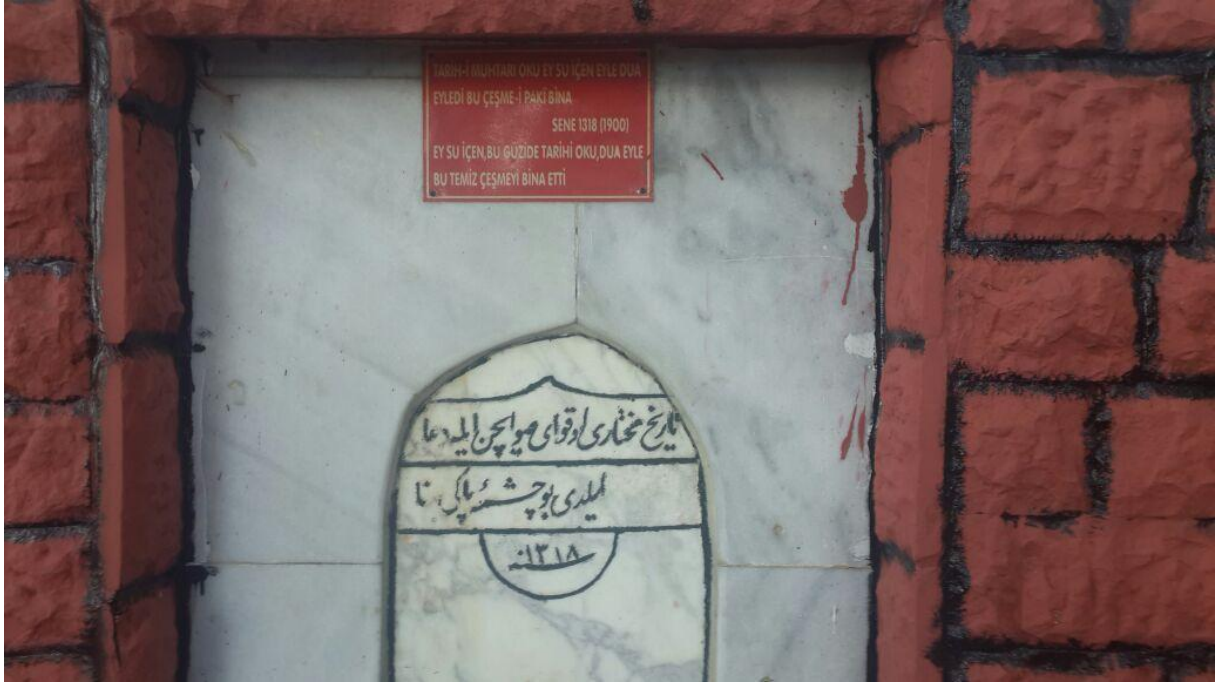 TARİH-İ MUHTARI OKU EY SU İÇEN EYLE DUA
EYLEDİ BU ÇEŞME-İ PAKİ BİNA
SENE 1318 (1900)
EY SU İÇEN,BU GÜZİDE TARİHİ OKU,DUA EYLE
BU TEMİZ ÇEŞMEYİ BİNA ETTİ
تاریخ مختاری اوقو ای صو ایچن ایله دعا
ایلدی بو چشمهٔ پاکی
سنه ١٣١٨